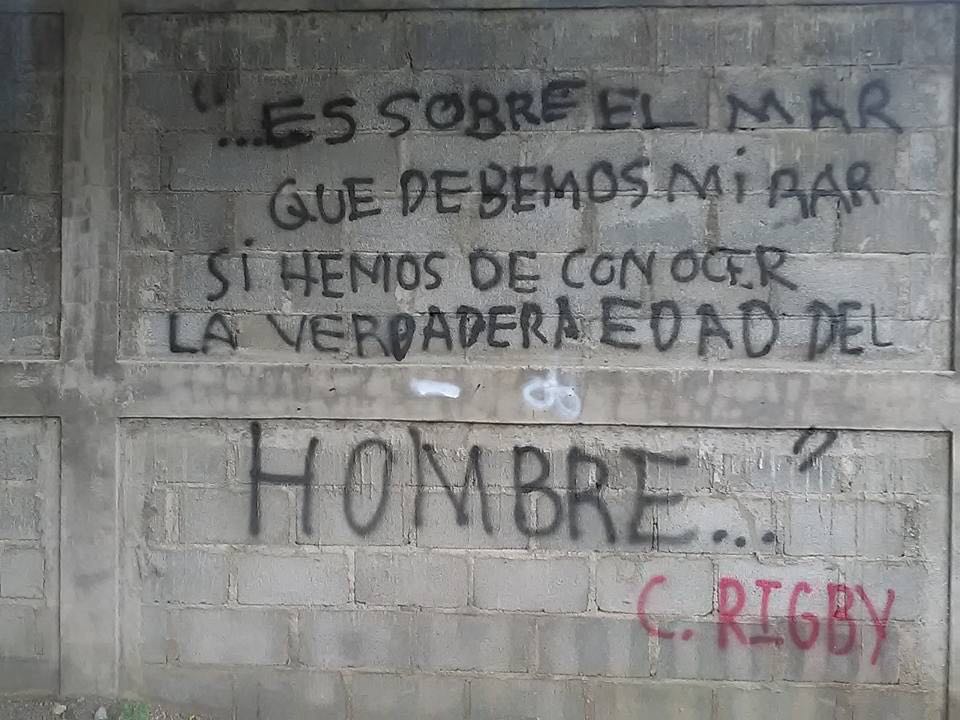 "...ES SOBRE EL MAR
QUE DEBEMOS MiRAR
Si HEMOS DE CONOCER
LA VERDADERA EDAD DEL
HOMBRE..."
C. RIGBY